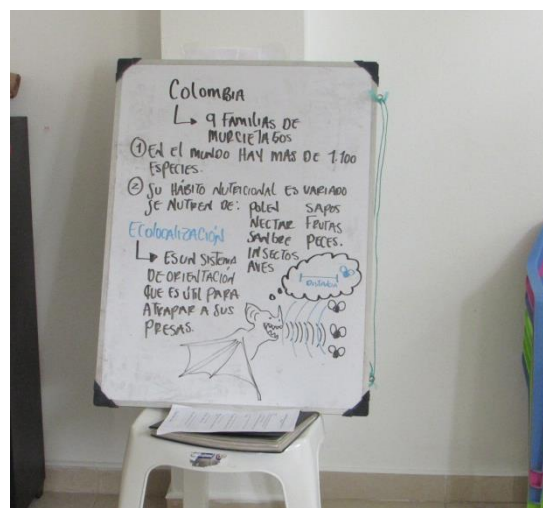 Colombia
9 FAMILIAS DE
MURCIELAGOS
① EN El MUNDO HAY MAS DE 1.100
ESPECIES.
② SU HÁBITO NUTRICIONAL ES VARIADO
SE NUTREN DE: POLEN SAPOS
NECTAR FRUTAS
SANGRE PECES.
INSECTOS
AVES
ECOlocalizACIÓN
ES UN SISTEMA
DE ORIENTACIÓN
QUE ES ÚTIL PARA
ATRAPAR A SUS
PRESAS.